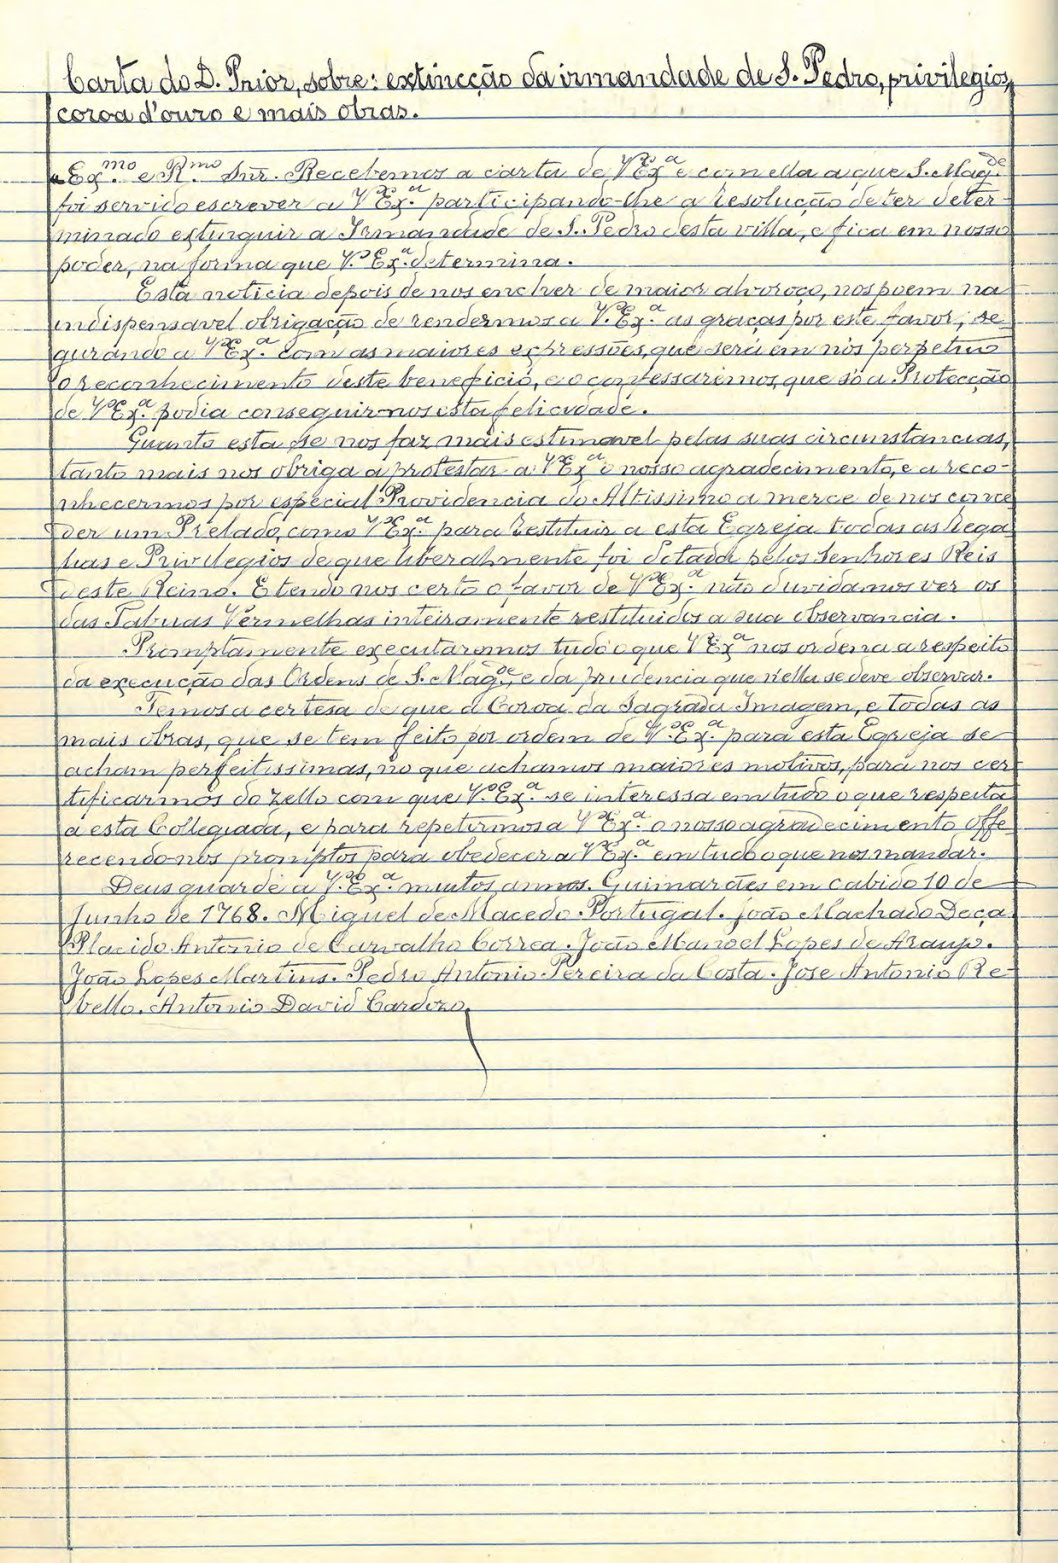 Carta do D. Prior, sobre: extincção da irmandade de S. Pedro, privilegios,
coroa d'ouro e mais obras.
"Ex.mo e R.mo Snr. Recebemos a carta de V.Ex.a e com ella a que S. Mag.de
foi servido escrever a V.Ex.a participando-lhe a resolução de ter deter-
minado extinguir a Irmandade de S. Pedro desta villa, e fica em nosso
poder, na forma que V.Ex.a determina.
Esta noticia depois de nos encher de maior alvoroço, nos poem na
indispensavel obrigação de rendermos a V.Ex.a as graças por este favor, se-
gurando a V.Ex.a com as maiores expressões, que será em nós perpetuo
o reconhecimento deste beneficio, e o confessarimos, que só a Protecção
de V.Ex.a podia conseguir-nos esta felicidade.
Quanto esta se nos faz mais estimavel pelas suas circunstancias,
tanto mais nos obriga a protestar a V.Ex.a o nosso agradecimento, e a reco-
nhecermos por especial Providencia do Altissimo a merce de nos conce
der um Prelado, como V.Ex.a para restituir a esta Egreja todas as Rega
lias e Privilegios de que liberalmente foi dotada pelos Senhores Reis
deste Reino. E tendo nos certo o favor de V.Ex.a não duvidamos ver os
das Tabuas Vermelhas inteiramente restituidos a sua observancia.
Promptamente executaremos tudo o que V.Ex.a nos ordena a respeito
da execução das Ordens de S. Mag.de, e da prudencia que nella se deve observar.
Temos a certesa de que a Coroa da Sagrada Imagem, e todas as
mais obras, que se tem feito por ordem de V.Ex.a para esta Egreja se
acham perfeitissimas, no que achamos maiores motivos, para nos cer-
tificarmos do zello com que V.Ex.a se interessa em tudo o que respeita
a esta Collegiada, e para repetirmos a V.Ex.a o nosso agradecimento offe
recendo-nos promptos para obedecer a V.Ex.a em tudo o que nos mandar.
Deus guarde a V.Ex.a muitos annos. Guimarães em cabido 10 de
Junho de 1768. Miguel de Macedo Portugal. João Machado Deça.
Placido Antonio de Carvalho Correa. João Manoel Lopes de Araujo.
João Lopes Martins. Pedro Antonio Pereira da Costa. Jose Antonio Re-
bello. Antonio David Cardozo.